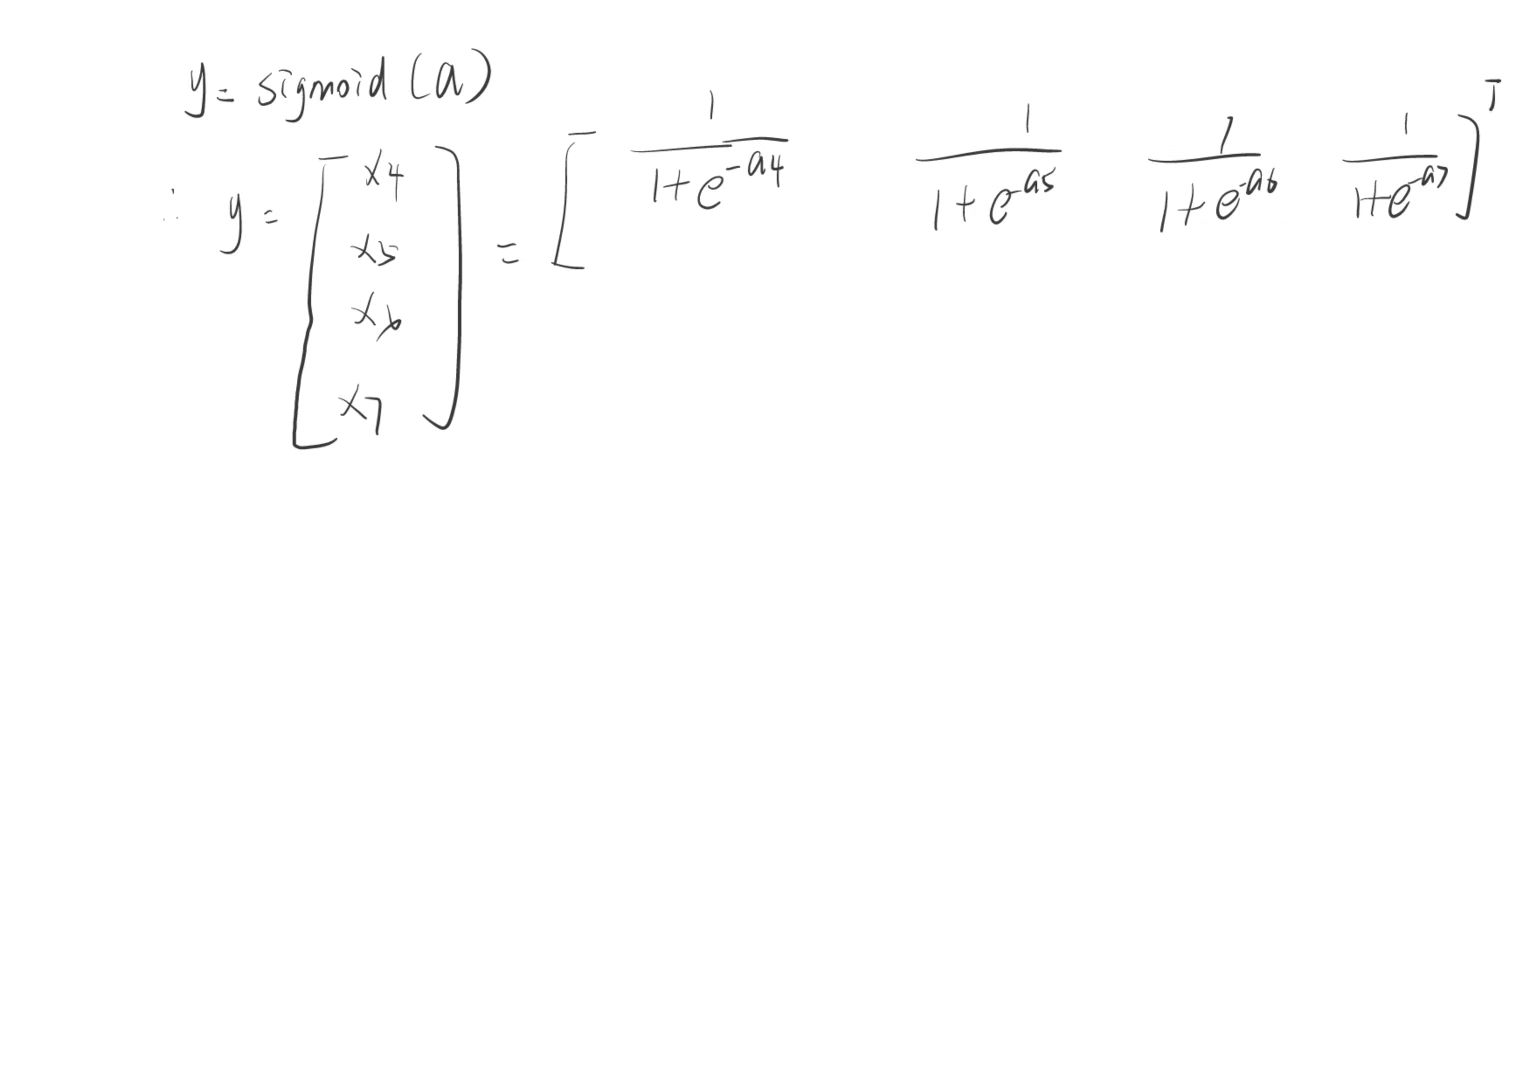 y = sigmoid (a)
∴ y = [x4 x5 x6 x7] = [1/(1+e^-a4) 1/(1+e^-a5) 1/(1+e^-a6) 1/(1+e^-a7)]^T